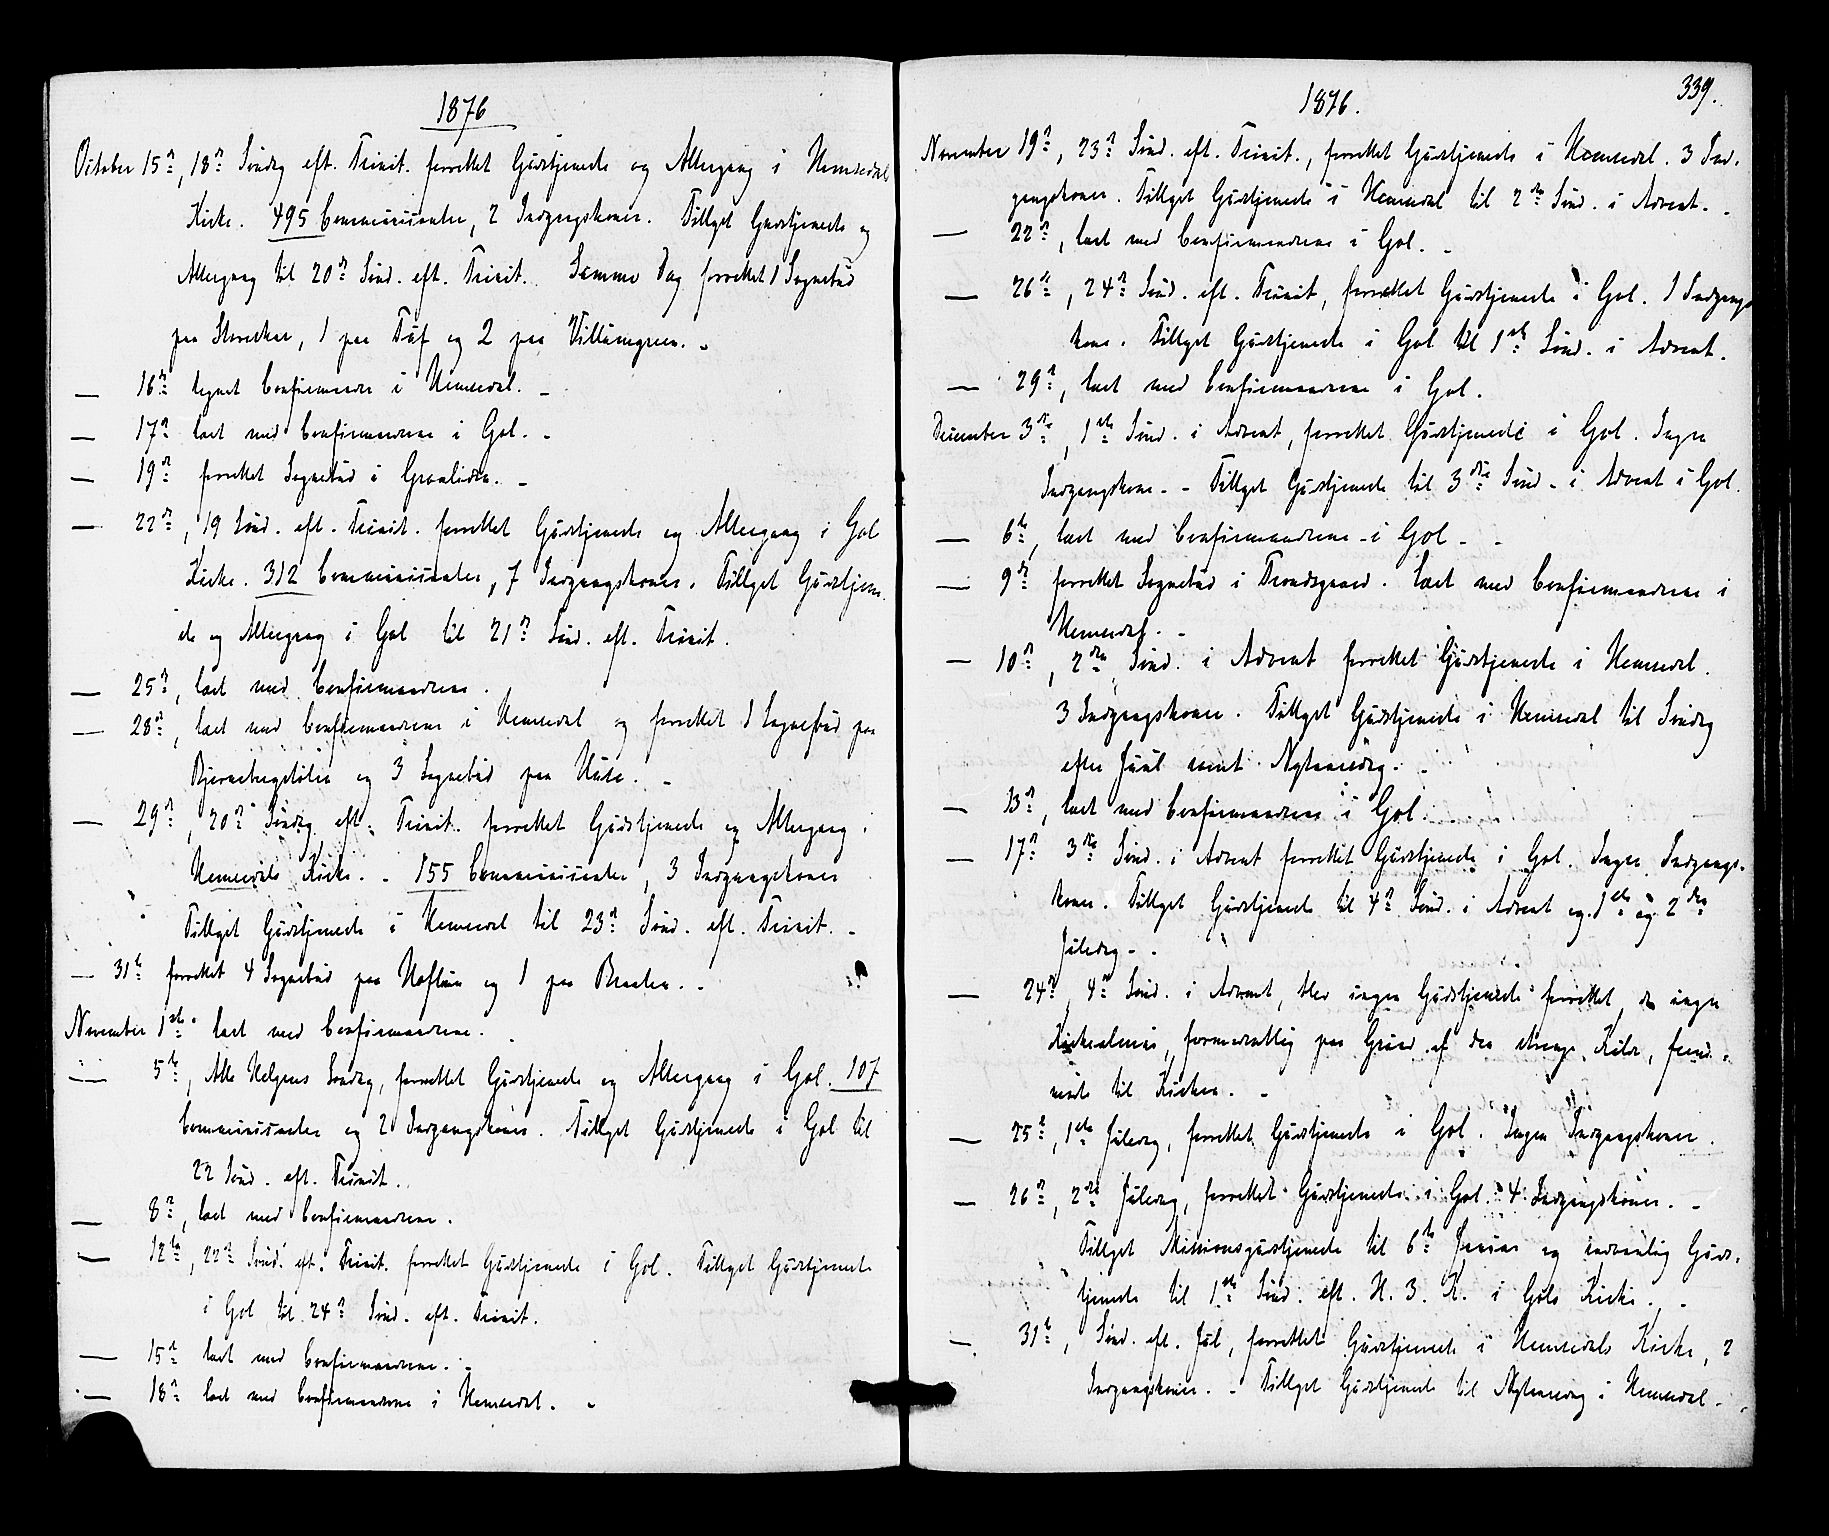 1876
October 15de, 18de Søndag eft. Trinit. forrettet Gudstjeneste og Altergang i Hemsedals
Kirke. 495 Communicanter, 2 Indgangskoner. Tillyst Gudstjeneste og
Altergang til 20de Sønd. eft. Trinit. Samme Dag forrettet 1 Sognebud
paa , 1 paa Tuf og 2 paa .
— 16de tegnet Confirmander i Hemsedal.
— 17de læst med Confirmanderne i Gol.
— 19de forrettet Sognebud i .
— 22de, 19 Sønd. eft. Trinit. forrettet Gudstjeneste og Altergang i Gol
Kirke. 312 Communicanter, 7 Indgangskoner. Tillyst Gudstjene-
ste og Altergang i Gol til 21de Sønd. eft. Trinit.
— 25de, læst med Confirmanderne.
— 28de, læst med Confirmanderne i Hemsedal og forrettet 1 Sognebud paa
Bjørnebergstølen og 3 Sognebud paa .
— 29de, 20de Søndag eft. Trinit. forrettet Gudstjeneste og Altergang i
Hemsedals Kirke. - 155 Communicanter, 3 Indgangskoner
Tillyst Gudstjeneste i Hemsedal til 23de Sønd. eft. Trinit. -
— 31te forrettet 4 Sognebud paa og 1 paa Braaten. -
November 1ste læst med Confirmanderne.
— 5te, Alle Helgens Søndag, forrettet Gudstjeneste og Altergang i Gol. 107
Communicanter og 2 Indgangskoner. Tillyst Gudstjeneste i Gol til
22 Sønd. eft. Trinit.
— 8de, læst med Confirmanderne.
— 12te, 22de Sønd. eft. Trinit. forrettet Gudstjeneste i Gol. Tillyst Gudstjeneste
i Gol til 24de Sønd. eft. Trinit.
— 15de læst med Confirmanderne. -
— 18de læst med Confirmanderne i Hemsedal. -
339.
1876.
November 19de, 23de Sønd. eft. Trinit., forrettet Gudstjeneste i Hemsedal. 3 Ind-
gangskoner. Tillyst Gudstjeneste i Hemsedal til 2den Sønd. i Advent. -
— 22de, læst med Confirmanderne i Gol. -
— 26de, 24de Sønd. eft. Trinit, forrettet Gudstjeneste i Gol. 1 Indgangs
kone. Tillyst Gudstjeneste i Gol til 1ste Sønd. i Advent.
— 29de, læst med Confirmanderne i Gol.
December 3die, 1ste Sønd. i Advent, forrettet Gudstjeneste i Gol. Ingen
Indgangskone. - Tillyst Gudstjeneste til 3die Sønd. i Advent i Gol.
— 6te, læst med Confirmanderne i Gol. -
— 9de forrettet Sognebud i Trondsgaard. læst med Confirmanderne i
Hemsedal. -
— 10de, 2den Sønd. i Advent forrettet Gudstjeneste i Hemsedal.
3 Indgangskoner. Tillyst Gudstjeneste i Hemsedal til Søndag
efter Juul samt Nytaarsdag. -
— 13de, læst med Confirmanderne i Gol.
— 17de 3die Sønd. i Advent forrettet Gudstjeneste i Gol. Ingen Indgangs-
koner. Tillyst Gudstjeneste til 4de Sønd. i Advent og 1ste og 2den
Juledag. -
— 24de, 4de Sønd. i Advent, blev ingen Gudstjeneste forrettet, da ingen
Kirkealmue, formodentlig paa Grund af den strenge Kulde, frem-
mødte til Kirken. -
— 25de, 1ste Juledag, forrettet Gudstjeneste i Gol. Ingen Indgangskoner.
— 26de, 2den Juledag, forrettet Gudstjeneste i Gol. 4 Indgangskoner. -
Tillyst Missionsgudstjeneste til 6te Januar og Guds-
tjeneste til 1ste Sønd. eft. H. 3. K. i Gols Kirke. -
— 31te, Sønd. eft. Jul, forrettet Gudstjeneste i Hemsedals Kirke, 2
Indgangskoner. - Tillyst Gudstjeneste til Nytaarsdag i Hemsedal. -